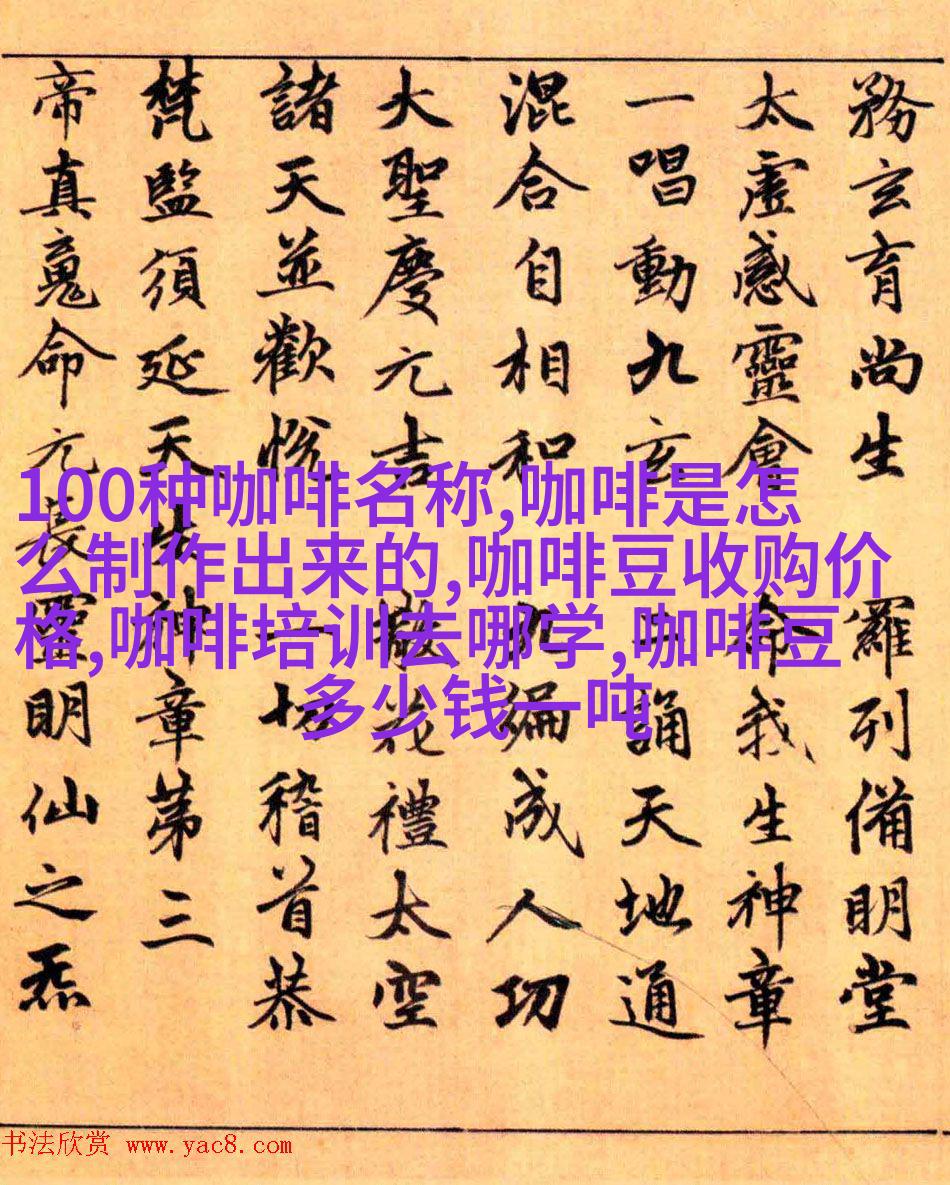 務玄育尚生 羅列備明堂
太虛感靈會 命我生神章
一唱動九玄 二誦天地通
混合自相和 九編成人功
大聖慶元吉 散花禮太空
諸天並歡悅 一切稽首恭
梵監須延天生神章第三
帝真命元長靈明仙之炁
100种咖啡名称,咖啡是怎
么制作出来的,咖啡豆收购价
格,咖啡培训去哪学,咖啡豆
多少钱一吨
书法欣赏 www.yac8.com